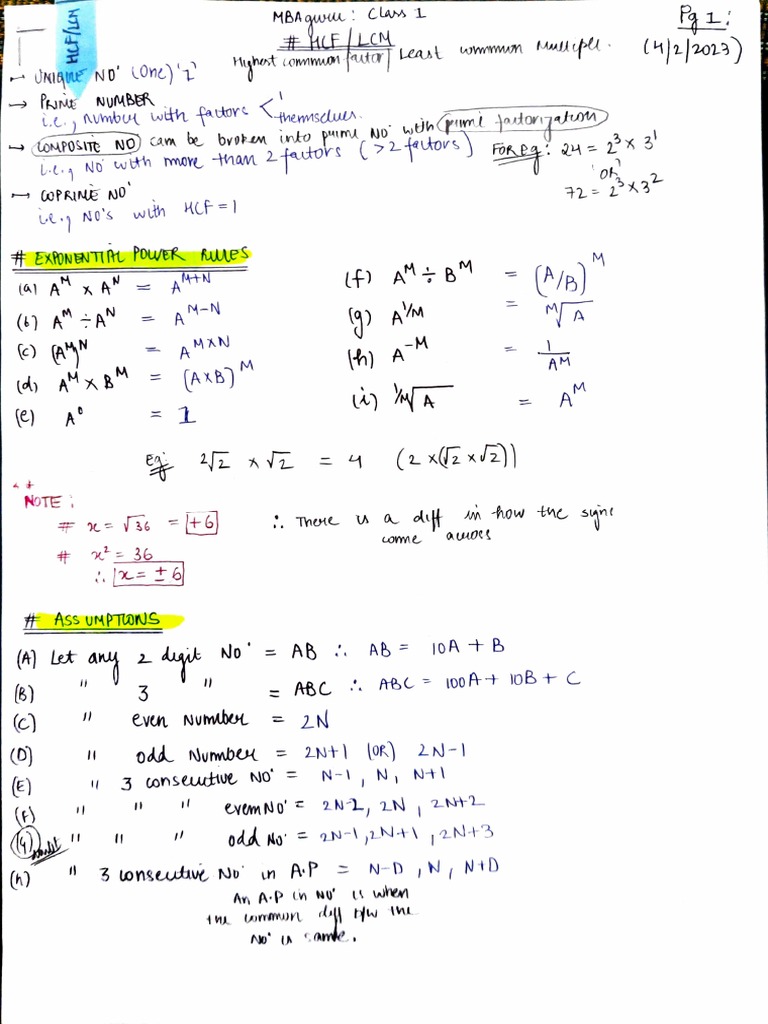 HCF/LCM
MBAguru: Class 1
Pg 1:
# HCF/LCM
(4/2/2023)
Highest common factor/ Least common Multiple.
→ UNIQUE NO' (One) '1'
→ PRIME NUMBER
i.e., number with factors < 1
themselves.
→ COMPOSITE NO can be broken into prime NO' with prime factorization
i.e., NO' with more than 2 factors (>2 factors)
For eg: 24 = 2³ × 3¹
'OR'
72 = 2³ × 3²
→ COPRIME NO'
i.e., NO's with HCF = 1
# EXPONENTIAL POWER RULES
(a) A^M × A^N = A^{M+N}
(b) A^M ÷ A^N = A^{M-N}
(c) (A^M)^N = A^{M×N}
(d) A^M × B^M = (A×B)^M
(e) A⁰ = 1
(f) A^M ÷ B^M = (A/B)^M
(g) A^{1/M} = ^M√A
(h) A^{-M} = 1/A^M
(i) ^{1/M}√A = A^M
Eg: 2√2 × √2 = 4 (2 × (√2 × √2))
NOTE:
# x = √36 = +6
∴ There is a diff in how the signs
come across
# x² = 36
∴ x = ± 6
# ASSUMPTIONS
(A) Let any 2 digit NO' = AB ∴ AB = 10A + B
(B) " 3 " = ABC ∴ ABC = 100A + 10B + C
(C) " even Number = 2N
(D) " odd Number = 2N+1 (OR) 2N-1
(E) " 3 consecutive NO' = N-1, N, N+1
(F) " " " even NO' = 2N-2, 2N, 2N+2
(G) " " " odd NO' = 2N-1, 2N+1, 2N+3
(h) " 3 consecutive NO' in A.P = N-D, N, N+D
An A.P in NO' is when
the common diff b/w the
NO' is same.